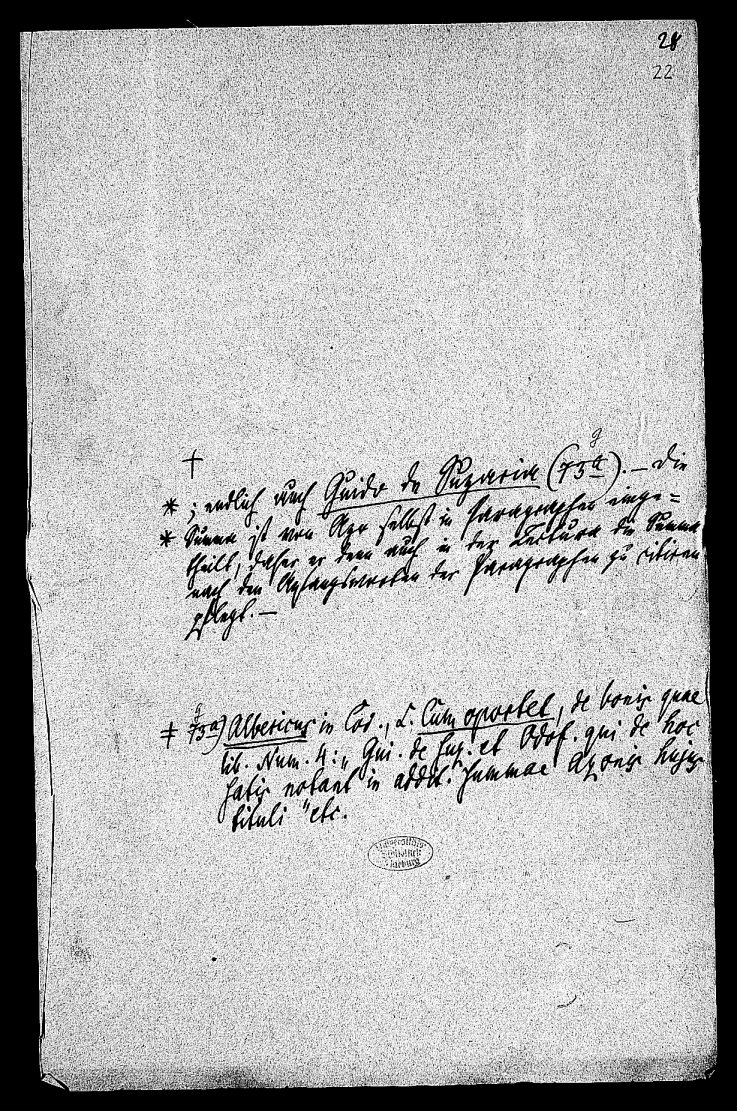 28
22
†
g
* ; endlich auch Guido de Suzaria (73a). — Die
* Summa ist von Azo selbst in Paragraphen einge=
theilt, daher er denn auch in der Lectura die Summa
nach den Anfangsworten der Paragraphen zu citiren
pflegt. —
g
‡ 73a) Albericus in Cod., L. Cum oportet, de bonis quae
lib. Num. 4: „ Gui. de Suz. et Odof. qui de hoc
satis notant in addit. summae Azonis hujus
tituli " etc.
Universitäts
Bibliothek
Marburg